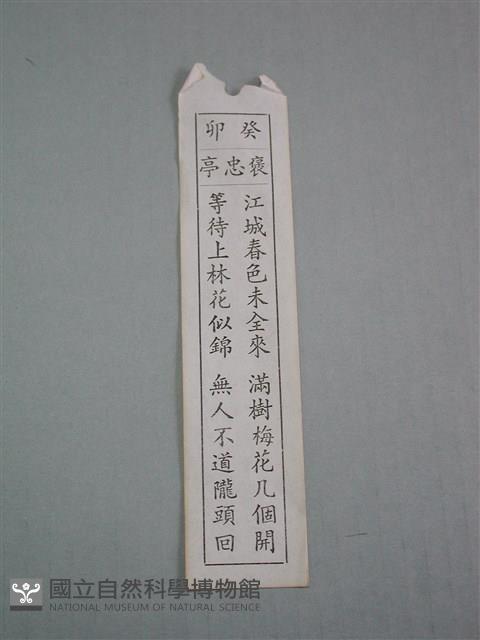 癸卯
褒忠亭
江城春色未全來 滿樹梅花几個開
等待上林花似錦 無人不道隴頭回
國立自然科學博物館
NATIONAL MUSEUM OF NATURAL SCIENCE